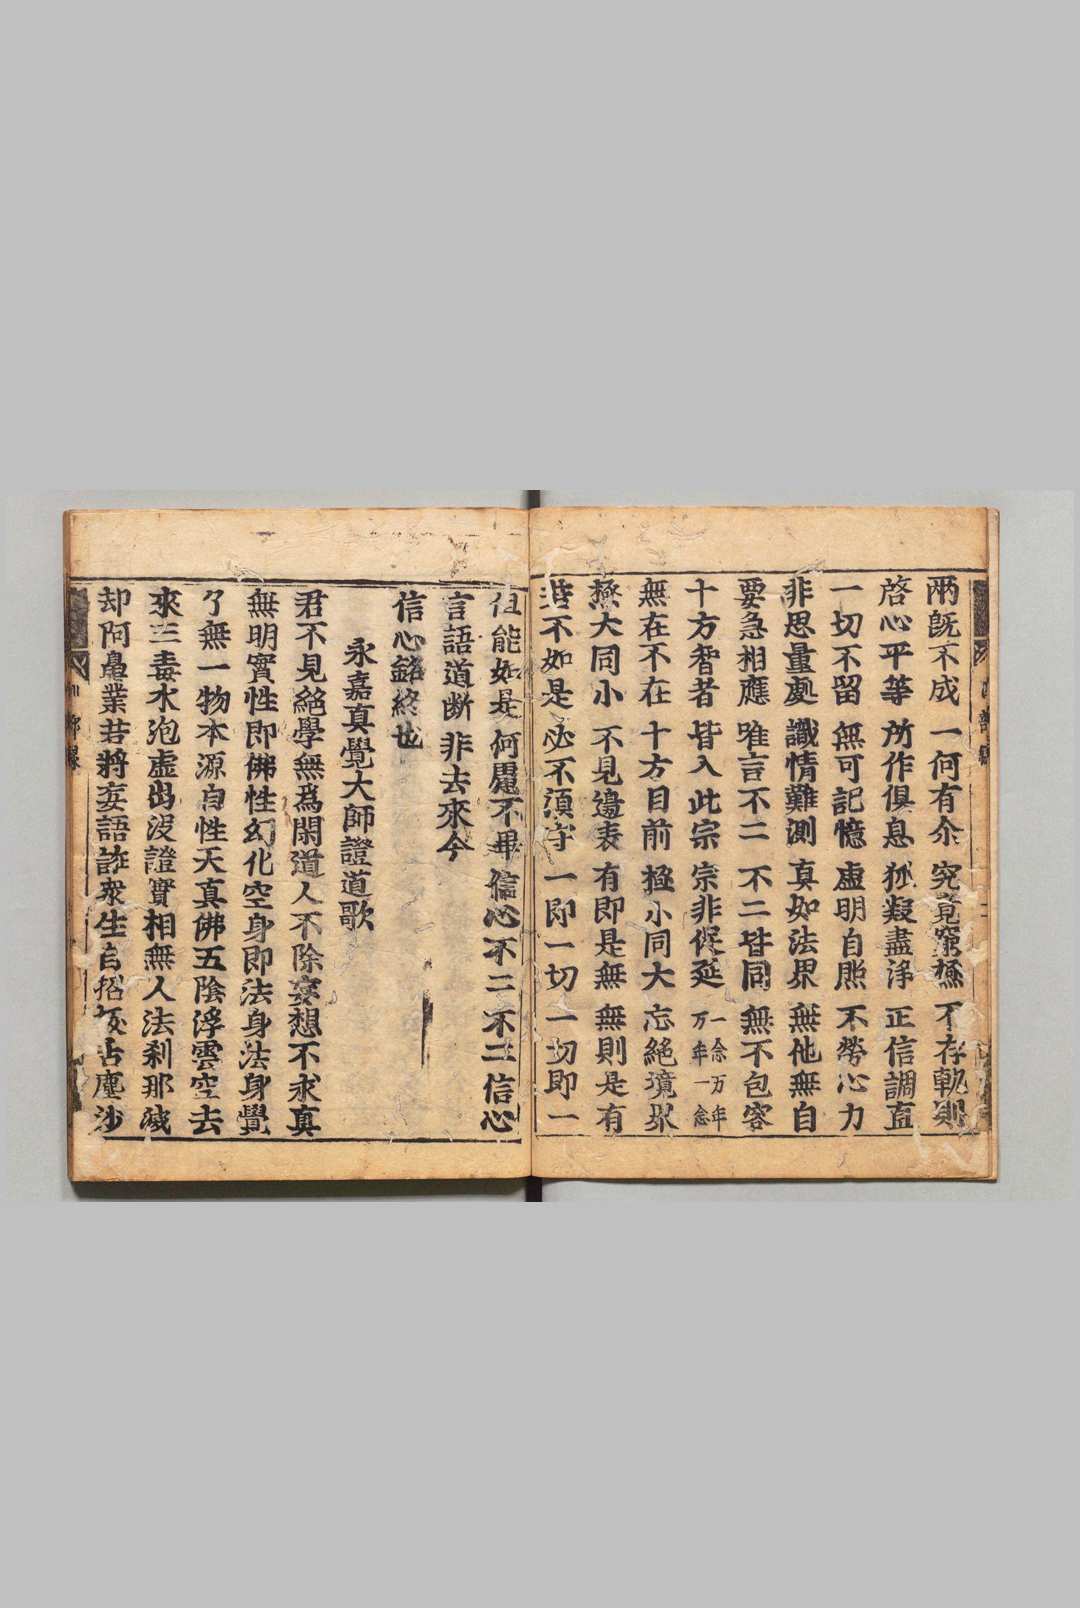 兩旣不成　一何有尒　究竟窮極　不存軌則
啓心平等　所作俱息　狐疑盡淨　正信調直
一切不留　無可記憶　虛明自照　不勞心力
非思量處　識情難測　真如法界　無他無自
要急相應　唯言不二　不二皆同　無不包容
十方智者　皆入此宗　宗非促延　一念万年万年一念
無在不在　十方目前　極小同大　忘絕境界
極大同小　不見邊表　有即是無　無則是有
若不如是　必不須守　一即一切　一切即一
但能如是　何慮不畢　信心不二　不二信心
言語道断　非去來今
信心銘終也
永嘉真覺大師證道歌
君不見絕學無爲閑道人不除妄想不求真
無明實性即佛性幻化空身即法身法身覺
了無一物本源自性天真佛五陰浮雲空去
來三毒水泡虛出沒證實相無人法刹那滅
却阿鼻業若將妄語誑衆生自招拔舌塵沙